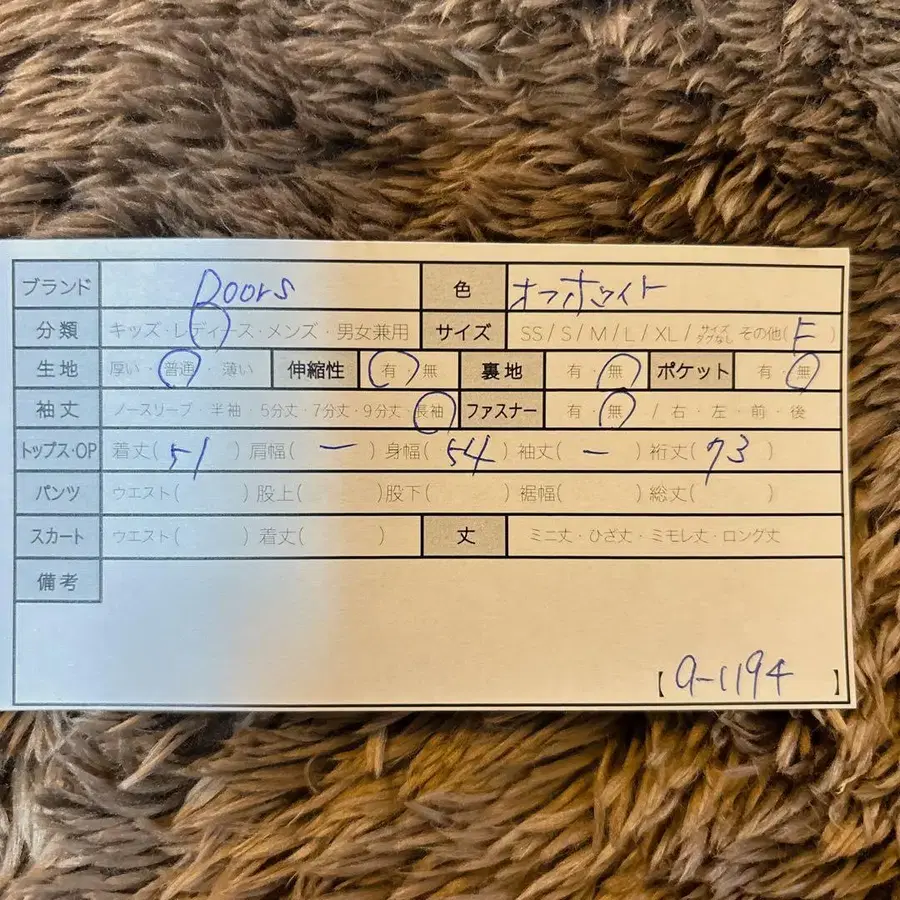 ブランド Doors 色 オフホワイト
分類 キッズ・レディース・メンズ・男女兼用 サイズ SS / S / M / L / XL / サイズタグなし その他( F )
生地 厚い・普通・薄い 伸縮性 有・無 裏地 有・無 ポケット 有・無
袖丈 ノースリーブ・半袖・5分丈・7分丈・9分丈・長袖 ファスナー 有・無 / 右・左・前・後
トップス・OP 着丈( 51 ) 肩幅( ー ) 身幅( 54 ) 袖丈( ー ) 裄丈( 73 )
パンツ ウエスト( ) 股上( ) 股下( ) 裾幅( ) 総丈( )
スカート ウエスト( ) 着丈( ) 丈 ミニ丈・ひざ丈・ミモレ丈・ロング丈
備考
【 a-1194 】